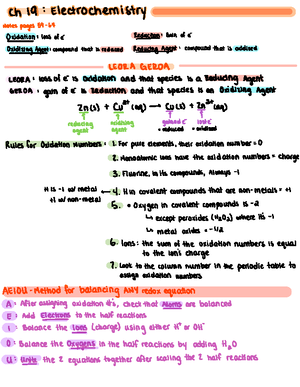 Ch 19 : Electrochemistry
notes pages 59-69
Oxidation : loss of e⁻ Reduction : gain of e⁻
Oxidizing Agent : compound that is reduced Reducing Agent : compound that is oxidized
LEORA GEROA
LEORA : loss of e⁻ is Oxidation and that species is a Reducing Agent
GEROA : gain of e⁻ is Reduction and that species is an Oxidizing Agent
Zn(s) + Cu²⁺(aq) → Cu(s) + Zn²⁺(aq)
reducing agent oxidizing agent gained e⁻ = reduced lost e⁻ = oxidized
Rules for Oxidation Numbers : 1. For pure elements, their oxidation number = 0
2. Monoatomic ions have the oxidation numbers = charge
3. Fluorine, in its compounds, always -1
H is -1 w/ metal
+1 w/ non-metal
4. H in covalent compounds that are non-metals = +1
5. = Oxygen in covalent compounds is -2
↳ except peroxides (H₂O₂) where it's -1
↳ metal oxides = -1/2
6. Ions: the sum of the oxidation numbers is equal
to the ion's charge
7. Look to the column number in the periodic table to
assign oxidation numbers
AEIOU - Method for balancing ANY redox equation
A : After assigning oxidation #'s, check that Atoms are balanced
E : Add Electrons to the half reactions
I : Balance the Ions (charge) using either H⁺ or OH⁻
O : Balance the Oxygens in the half reactions by adding H₂O
U : Unite the 2 equations together after scaling the 2 half reactions